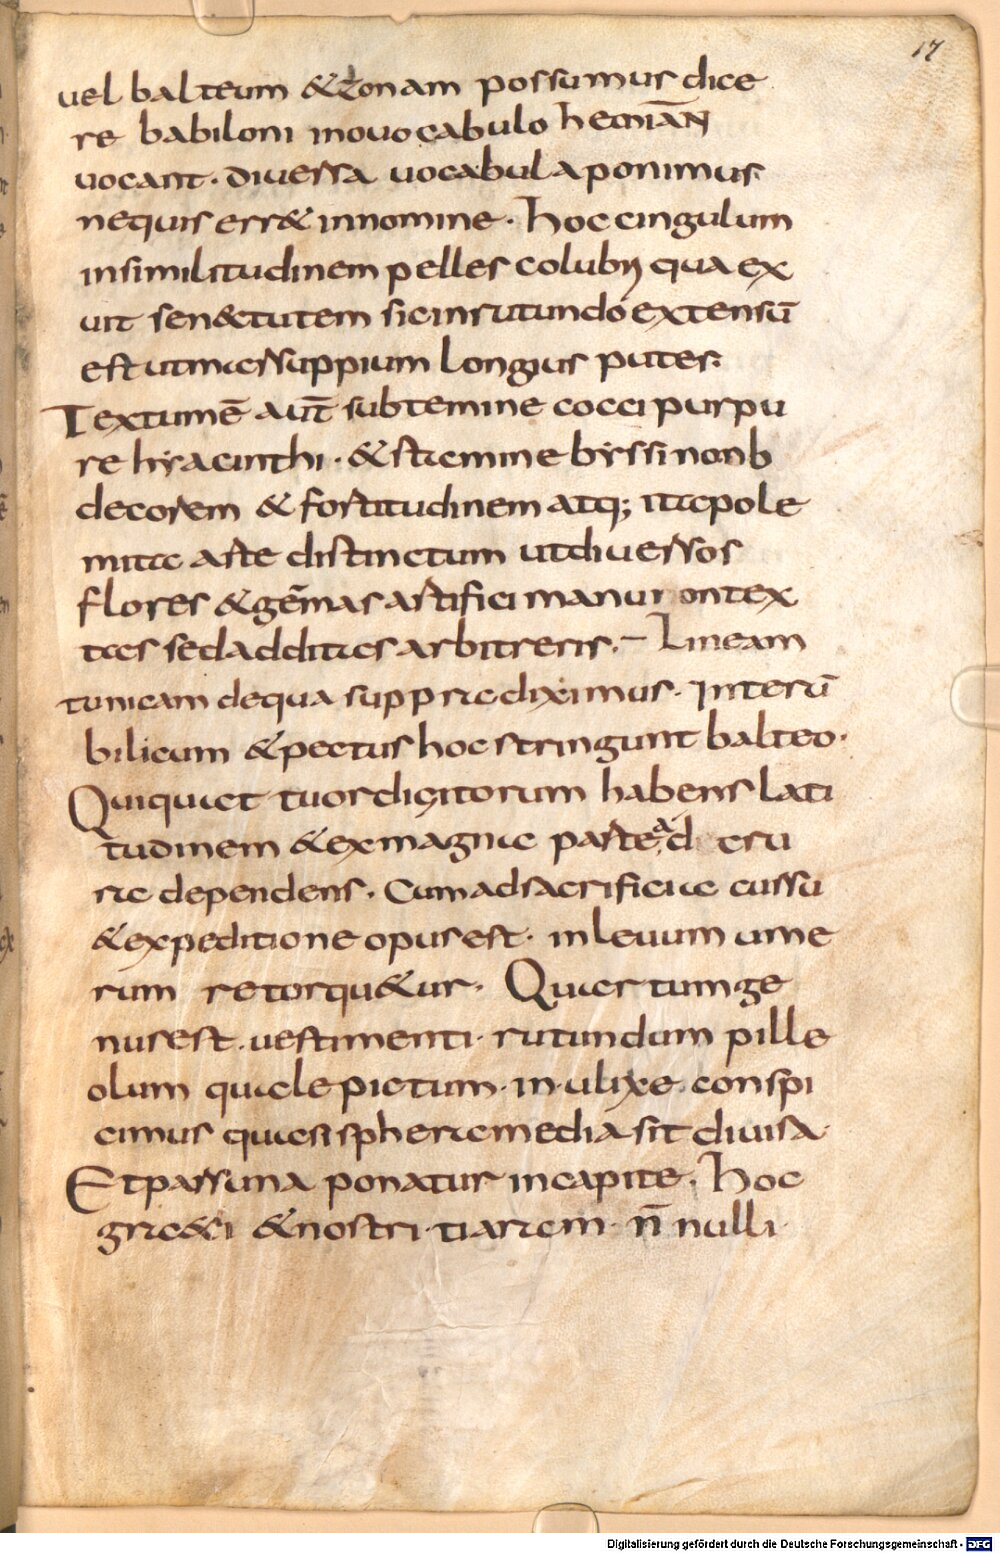 17
uel balteum & zonam possumus dice
re babiloni inouo cabulo hemiān
uocant. diuersa uocabula ponimus
nequis err& innomine. hoc cingulum
insimilitudinem pelles colubri qua ex
uit sen&tutem sicinrutundo extensū
est utmarsuppium longius putes.
Textumē aut̄ subtemine cocci purpu
re hyacinthi. & stamine byssi nonb
decorem & fortitudinem atq; itapole
mita arte distinctum utdiuersos
flores & gēmas artifici manu ontex
tas sedadditas arbitreris. Lineam
tunicam dequa suppra diximus. Interū
bilicum & pectus hoc stringunt balteo.
Quiquiet tuor digitorum habens lati
tudinem & exmagna parte ad cru
ra dependens. Cum adsacrificiia cursu
& expeditione opus est. in leuum ume
rum retorqu&ur. Quartumge
nus est. uestimenti. rutundum pille
olum qualepictum. in. ulixe. conspi
cimus quasi spheramedia sit diuisa.
Et pars una ponatur incapite. hoc
gra&i & nostri. tiaram. n̄ nulli.
Digitalisierung gefördert durch die Deutsche Forschungsgemeinschaft - DFG